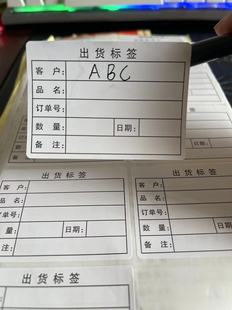 出货标签
客户: ABC
品名:
订单号:
数量: 日期:
备注:
出货标签
客户:
品名:
订单号:
数量: 日期:
备注:
出货标签
客户:
品名:
订单号:
数量: 日期:
备注:
出货标签